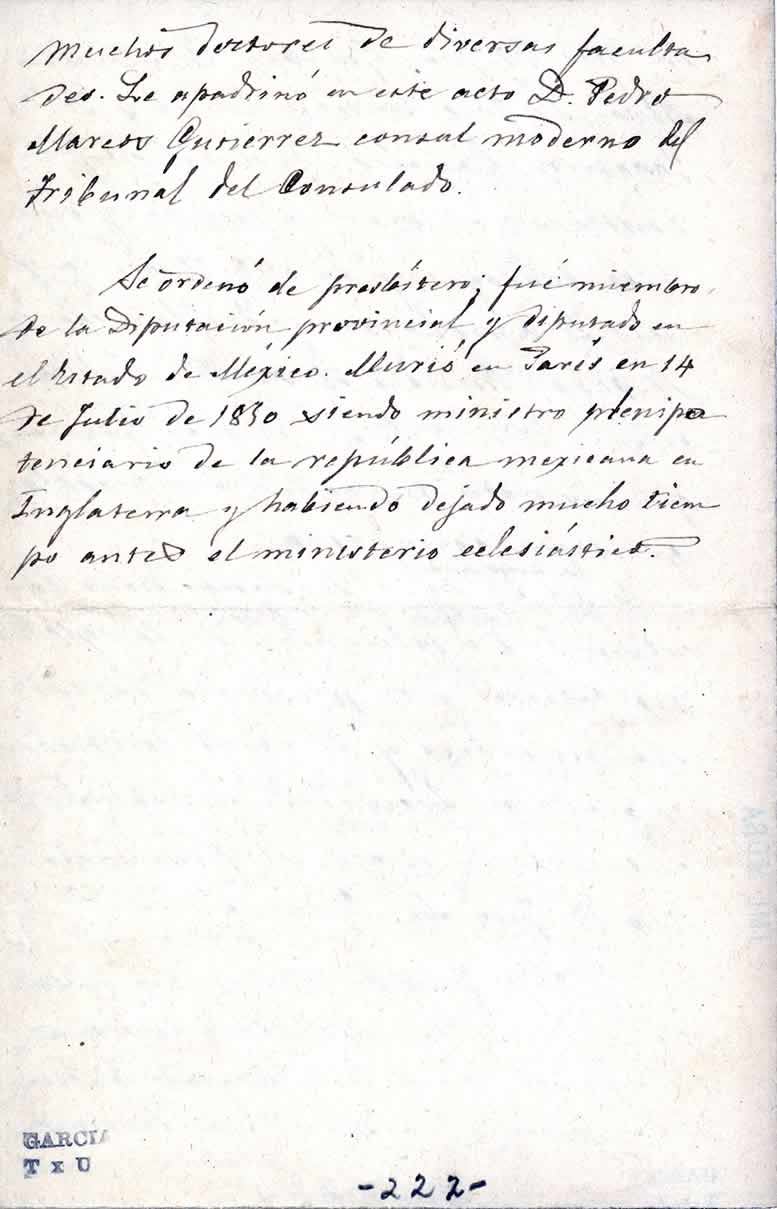 muchos doctores de diversas faculta
des. Le apadrinó en este acto D. Pedro
Marcos Gutierrez consul moderno del
Tribunal del Consulado.
Se ordenó de presbítero; fué miembro
de la Diputación provincial y diputado en
el Estado de México. Murió en París en 14
de Julio de 1830 siendo ministro plenipo
tenciario de la república mexicana en
Inglaterra y habiendo dejado mucho tiem
po antes el ministerio eclesiástico.
GARCIA
T x U
-222-